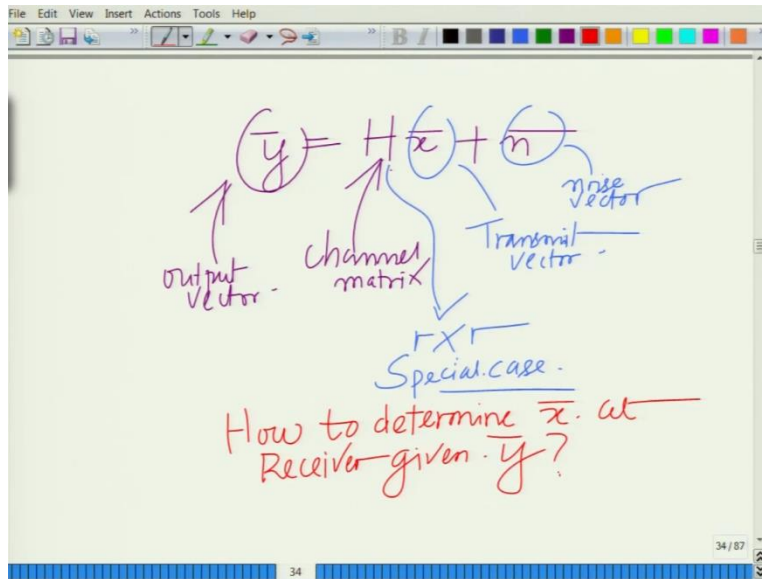 File Edit View Insert Actions Tools Help
B I
ȳ = H x̄ + n̄
noise
vector
Transmit
vector.
channel
matrix
output
vector.
r×r
Special.case.
How to determine x̄. at
Receiver given. ȳ?
34/87
34